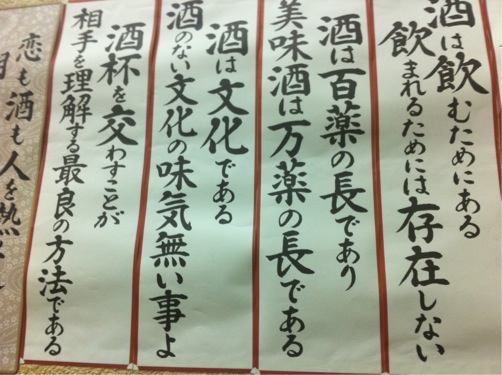 酒は飲むためにある
飲まれるためには存在しない
酒は百薬の長であり
美味酒は万薬の長である
酒は文化である
酒のない文化の味気無い事よ
酒杯を交わすことが
相手を理解する最良の方法である
恋も酒も人を熱